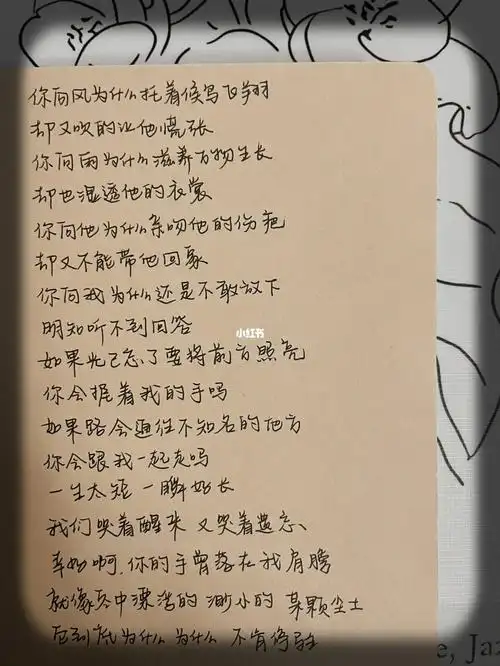 你问风为什么托着候鸟飞翔
却又吹的让他慌张
你问雨为什么滋养万物生长
却也湿透他的衣裳
你问他为什么亲吻他的伤疤
却又不能带他回家
你问我为什么还是不敢放下
明知听不到回答
小红书
如果光已忘了要将前方照亮
你会握着我的手吗
如果路会通往不知名的地方
你会跟我一起走吗
一生太短 一瞬好长
我们哭着醒来 又哭着遗忘、
幸好啊,你的手曾落在我肩膀
就像空中漂浮的 渺小的 某颗尘土
它到底为什么 为什么 不肯停驻
e, Ja